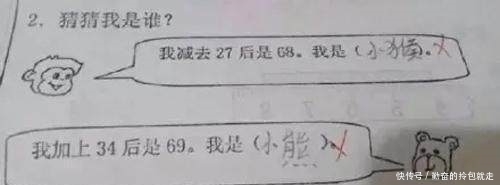 2．猜猜我是谁？
我减去 27 后是 68。我是（小猴）。
我加上 34 后是 69。我是（小熊）。
快传号 / 勤奋的拎包就走